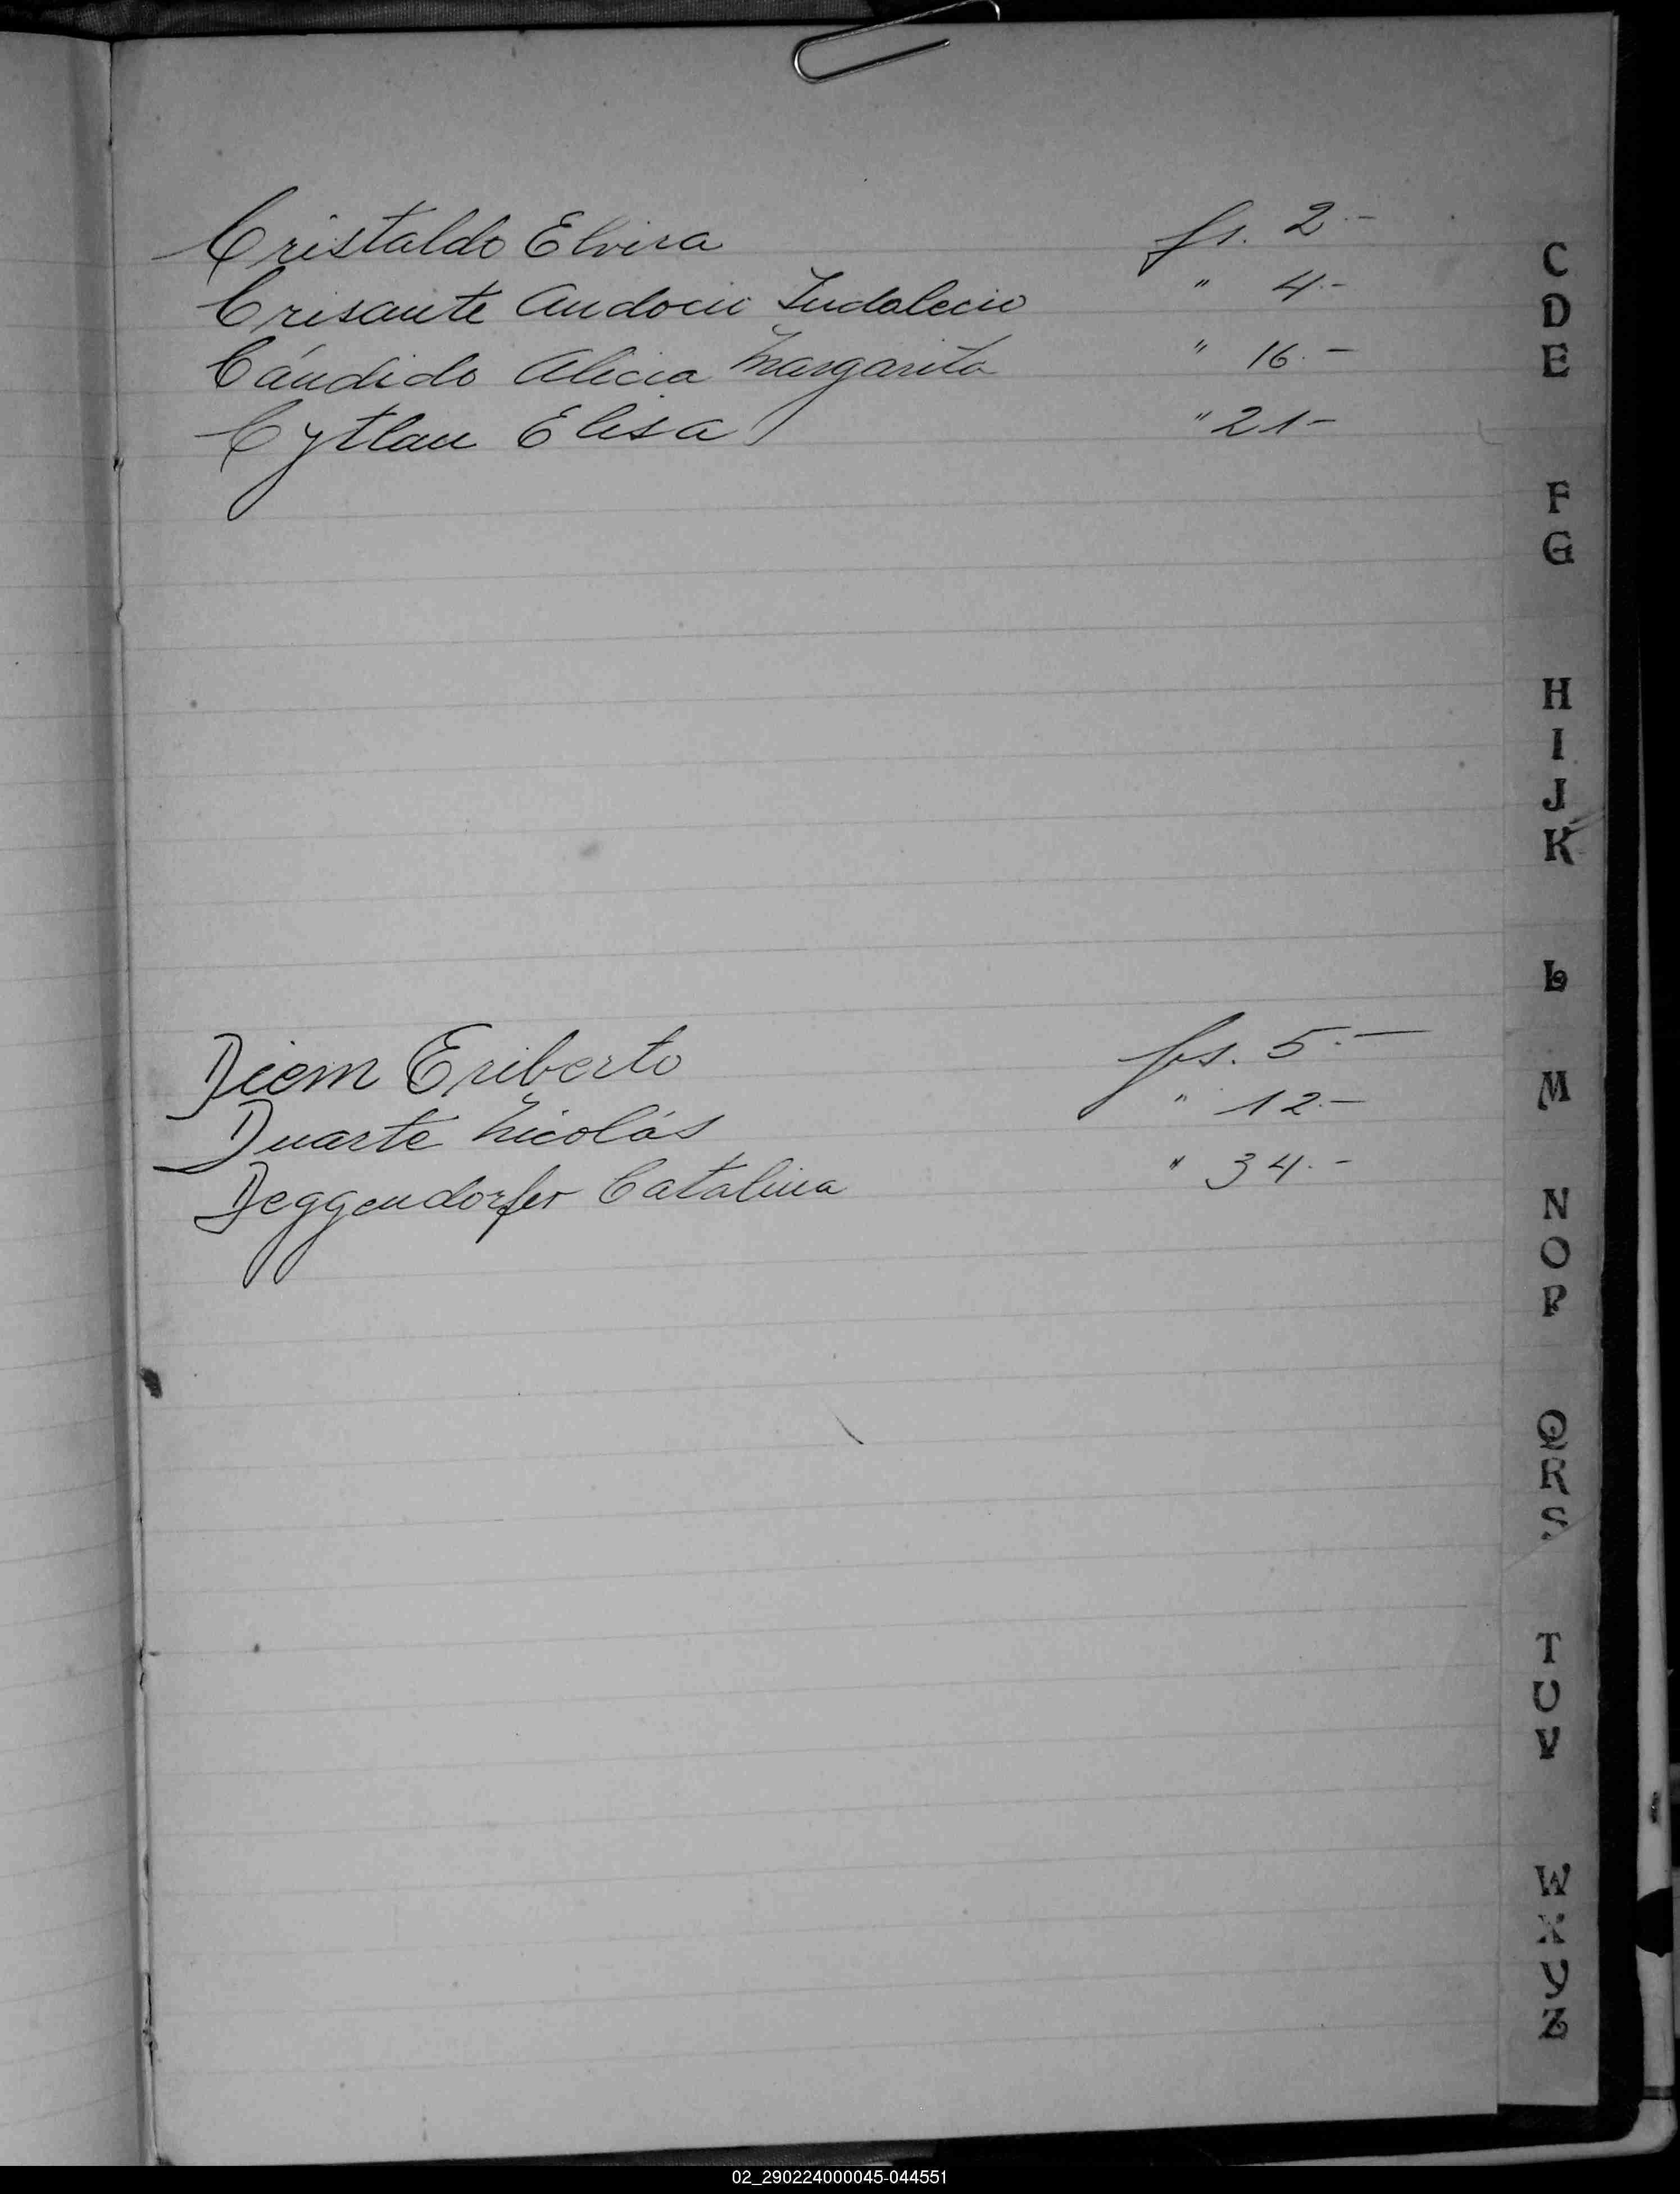 Cristaldo Elvira fs. 2.-
Crisante Indalecio " 4.-
Cándido Alicia Margarita " 16.-
Cytlau Elisa " 21-
Diem Eriberto fs. 5.-
Duarte Nicolás " 12.-
Deggendorfer Catalina " 34.-
C
D
E
F
G
H
I
J
K
L
M
N
O
P
Q
R
S
T
U
V
W
X
Y
Z
02_290224000045-044551